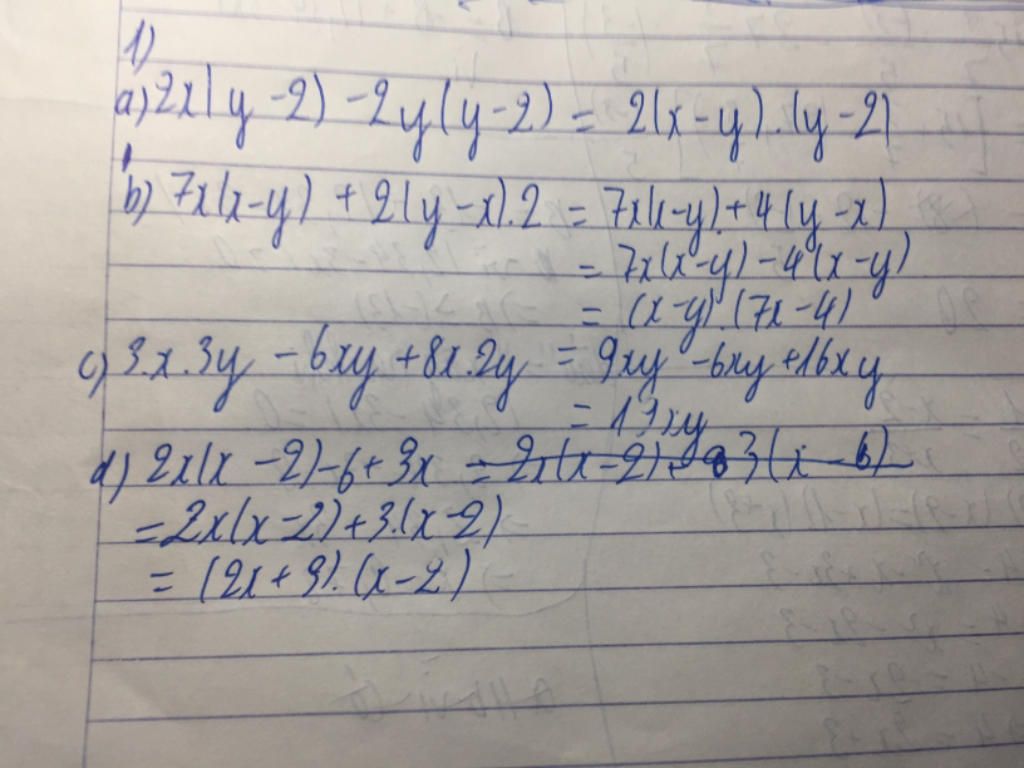 1)
a) 2x(y-2) - 2y(y-2) = 2(x-y).(y-2)
b) 7x(x-y) + 2(y-x).2 = 7x(x-y) + 4(y-x)
= 7x(x-y) - 4(x-y)
= (x-y).(7x-4)
c) 3.x.3y - 6xy + 8x.2y = 9xy - 6xy + 16xy
= 19xy
d) 2x(x-2) - 6 + 3x
= 2x(x-2) + 3.(x-2)
= (2x+3).(x-2)